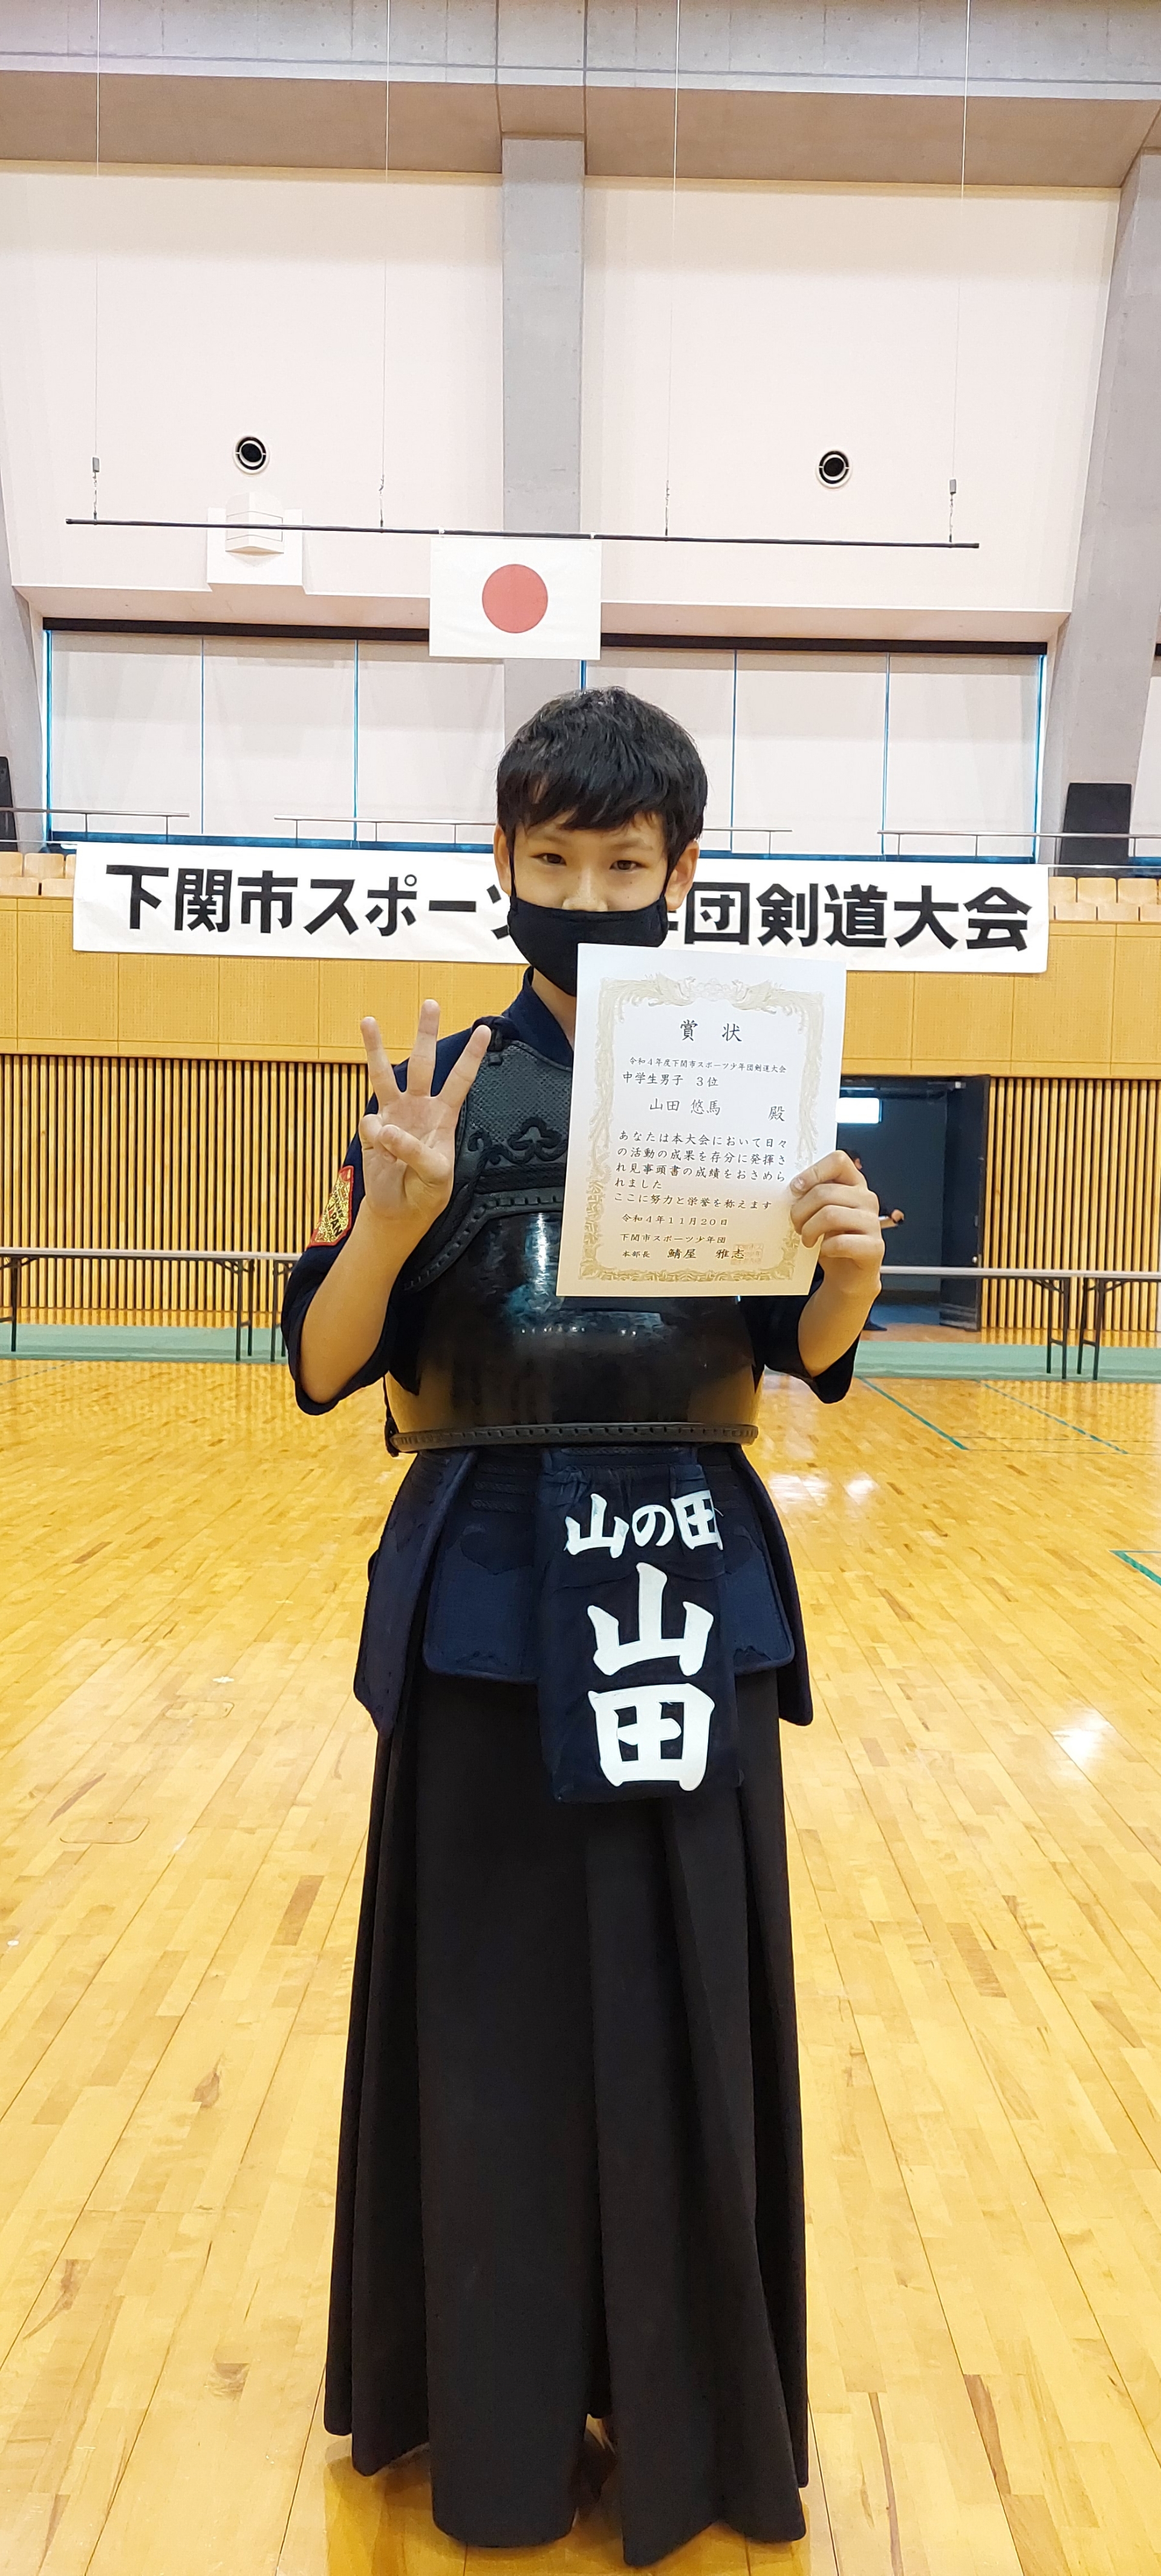 下関市スポー
団剣道大会
賞状
令和4年度下関市スポーツ少年団剣道大会
中学生男子 3位
山田 悠馬 殿
あなたは本大会において日々
の活動の成果を存分に発揮さ
れ見事頭書の成績をおさめら
れました
ここに努力と栄誉を称えます
令和4年11月20日
下関市スポーツ少年団
本部長 鯖屋 雅志
山の田
山
田